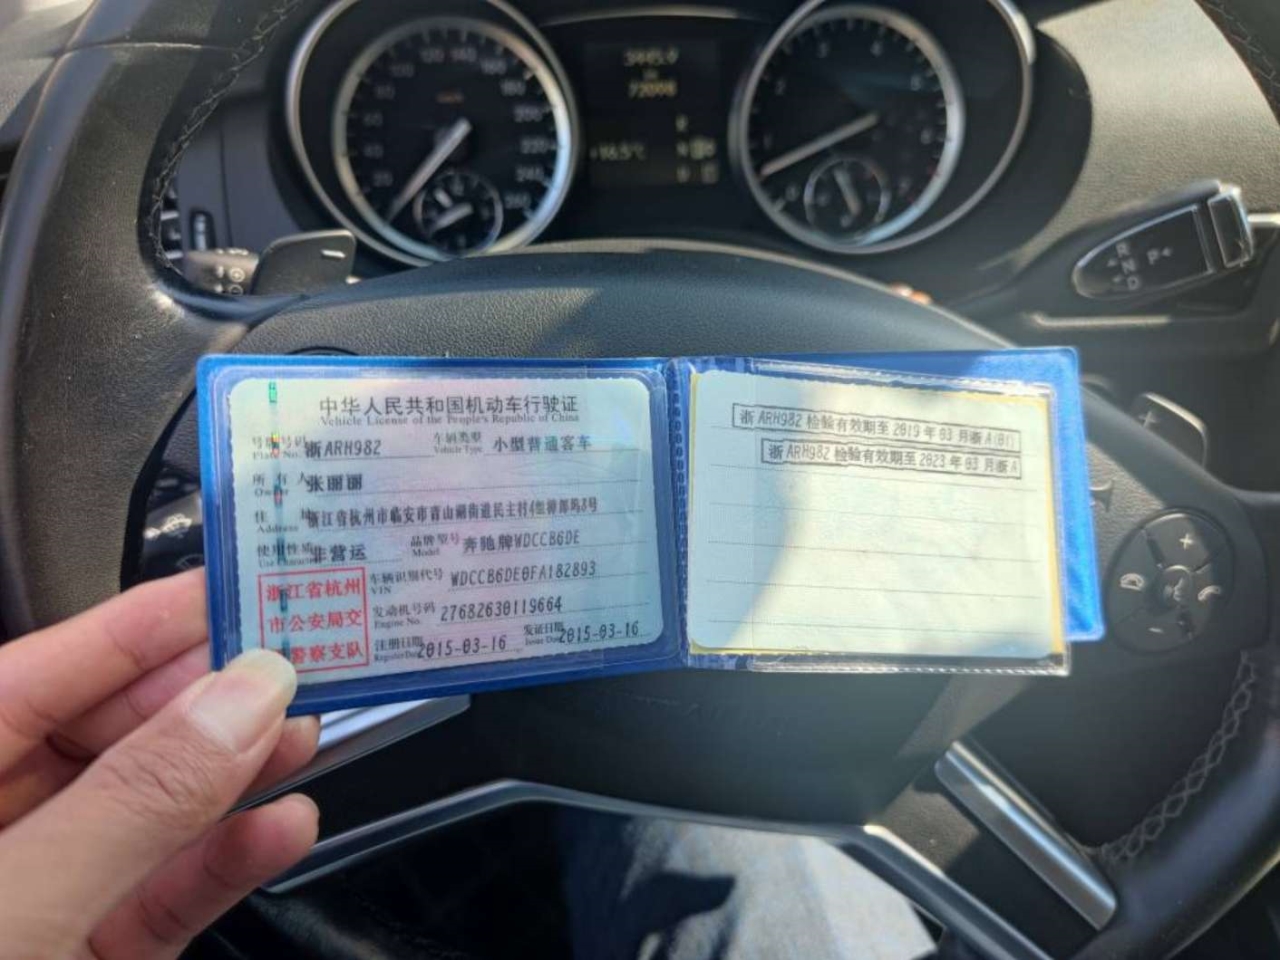 中华人民共和国机动车行驶证
Vehicle License of the People's Republic of China
号牌号码 浙ARH982 车辆类型 小型普通客车
Plate No. Vehicle Type
所有人 张丽丽
Owner
住址 浙江省杭州市临安市青山湖街道民主村4组
Address
使用性质 非营运 品牌型号 奔驰牌WDCCB6DE
Use Character Model
浙江省杭州
市公安局交
警察支队
车辆识别代号 WDCCB6DE0FA182893
VIN
发动机号码 27682630119664
Engine No.
注册日期 2015-03-16 发证日期 2015-03-16
Register Date Issue Date
浙ARH982 检验有效期至 2019 年 03 月浙A(01)
浙ARH982 检验有效期至 2023 年 03 月浙A
120 140
160
180
200
220
240
260
100
80
60
40
20
73098
+16.5℃
R
N P
D